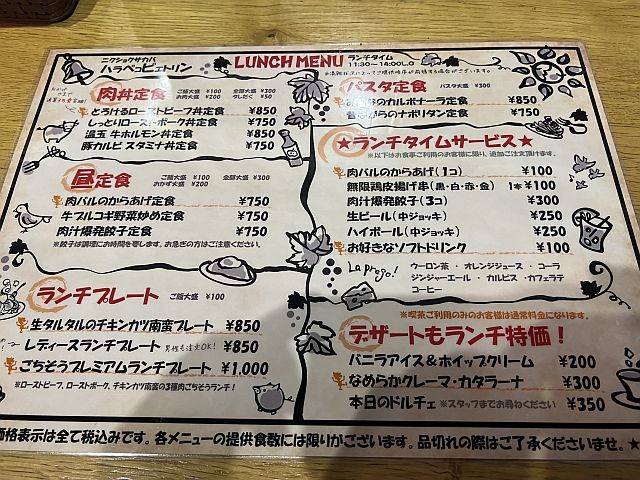 ニクショクサカバ
ハラペコピェトリン
LUNCH MENU ランチタイム
11:30～14:00L.O
肉丼定食
ご飯大盛 ¥100 全部大盛 ¥300
お肉大盛 ¥200 タレだく ¥50
とろけるローストビーフ丼定食 ¥850
しっとりローストポーク丼定食 ¥750
温玉 牛ホルモン丼定食 ¥850
豚カルビ スタミナ丼定食 ¥750
昼定食
ご飯大盛 ¥100 全部大盛 ¥300
おかず大盛 ¥200
肉バルのからあげ定食 ¥750
牛プルコギ野菜炒め定食 ¥750
肉汁爆発餃子定食 ¥750
※餃子は調理にお時間を要します。お急ぎの方はご注意ください。
ランチプレート ご飯大盛 ¥100
生タルタルのチキンカツ南蛮プレート ¥850
レディースランチプレート 男性も注文OK! ¥850
ごちそうプレミアムランチプレート ¥1,000
※ローストビーフ、ローストポーク、チキンカツ南蛮の3種肉ごちそうランチ！
パスタ定食 パスタ大盛 ¥300
なのカルボナーラ定食 ¥850
昔ながらのナポリタン定食 ¥750
★ランチタイムサービス★
※以下はお食事ご利用のお客様に限り、追加ご注文頂けます。
肉バルのからあげ(1コ) ¥100
無限鶏皮揚げ串(黒・白・赤・金) 1本¥100
肉汁爆発餃子(3コ) ¥300
生ビール(中ジョッキ) ¥250
ハイボール(中ジョッキ) ¥250
お好きなソフトドリンク ¥100
La prego!
ウーロン茶・オレンジジュース・コーラ
ジンジャーエール・カルピス・カフェラテ
コーヒー
※喫茶ご利用のみのお客様は通常料金になります。
デザートもランチ特価！
バニラアイス＆ホイップクリーム ¥200
なめらかクレーマ・カタラーナ ¥300
本日のドルチェ ※スタッフまでお尋ねください ¥350
価格表示は全て税込みです。各メニューの提供食数には限りがございます。品切れの際はご了承くださいませ。★